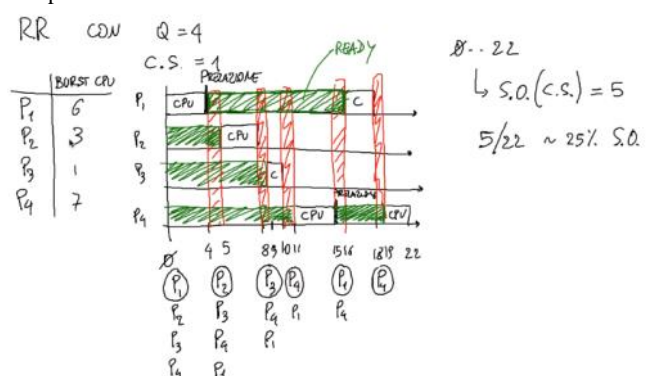 RR CON Q = 4
C.S. = 1
BURST CPU
P1 6
P2 3
P3 1
P4 7
PRELAZIONE
READY
P1 CPU C
P2 CPU
P3 C
PRELAZIONE
P4 CPU CPU
0 4 5 8 9 10 11 15 16 18 19 22
P1 P2 P3 P4 P1 P4
P2 P3 P4 P1 P4
P3 P4 P1
P4 P1
0..22
↳ S.O.(C.S.) = 5
5/22 ~ 25% S.O.